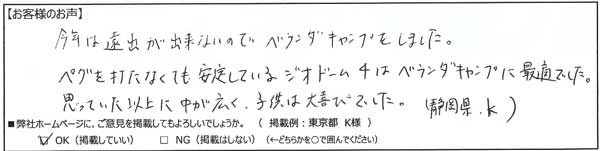 【お客様のお声】
今年は遠出が出来ないのでベランダキャンプをしました。
ペグを打たなくても安定しているジオドーム4はベランダキャンプに最適でした。
思っていた以上に中が広く、子供は大喜びでした。(静岡県.K)
■弊社ホームページに、ご意見を掲載してもよろしいでしょうか。（ 掲載例：東京都 K様 ）
☑ OK（掲載していい） □ NG（掲載はしない）（←どちらかを○で囲んでください）